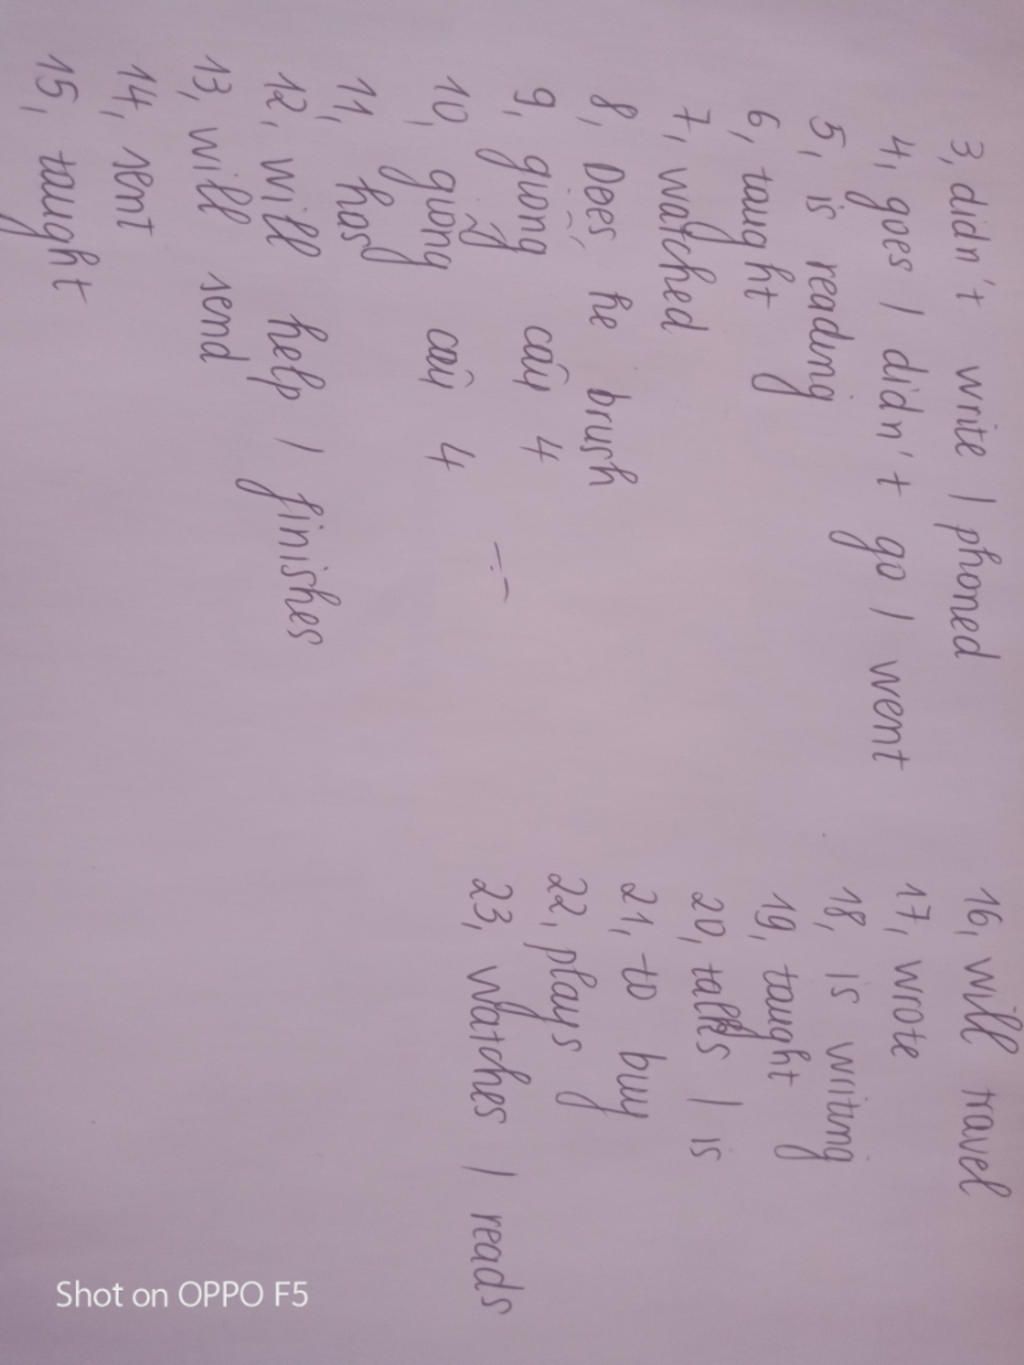 3, didn't write / phoned
4, goes / didn't go / went
5, is reading
6, taught
7, watched
8, Does he brush
9, giống câu 4
10, giống câu 4
11, has
12, will help / finishes
13, will send
14, sent
15, taught
16, will travel
17, wrote
18, is writing
19, taught
20, talks / is
21, to buy
22, plays
23, watches / reads
Shot on OPPO F5